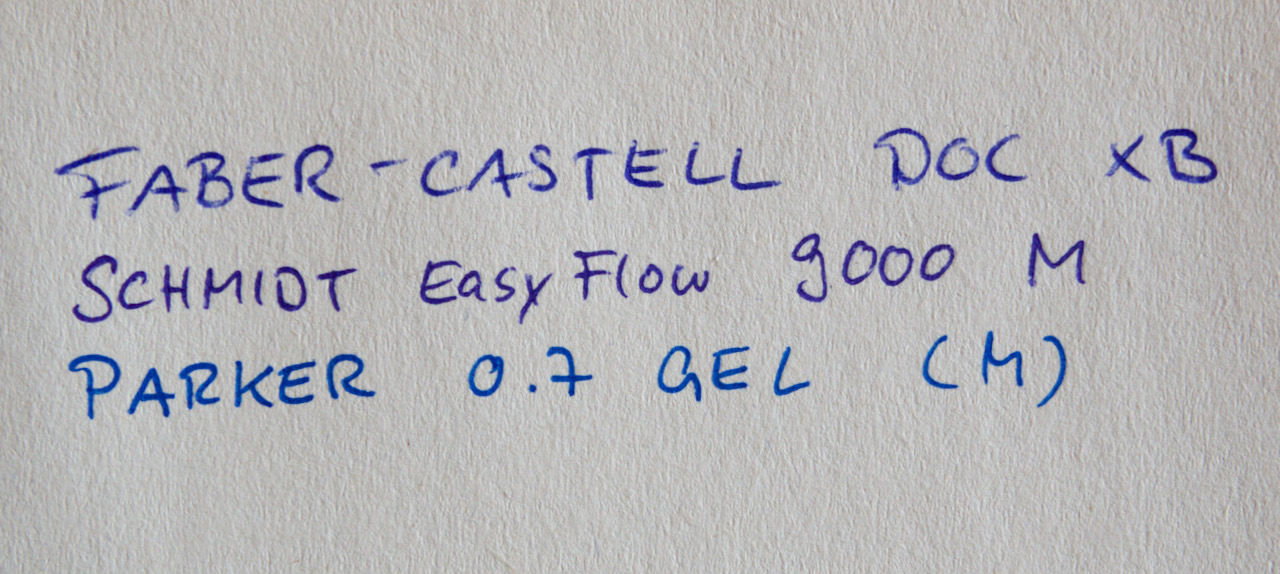 FABER-CASTELL DOC XB
SCHMIDT Easy Flow 9000 M
PARKER 0.7 GEL (M)